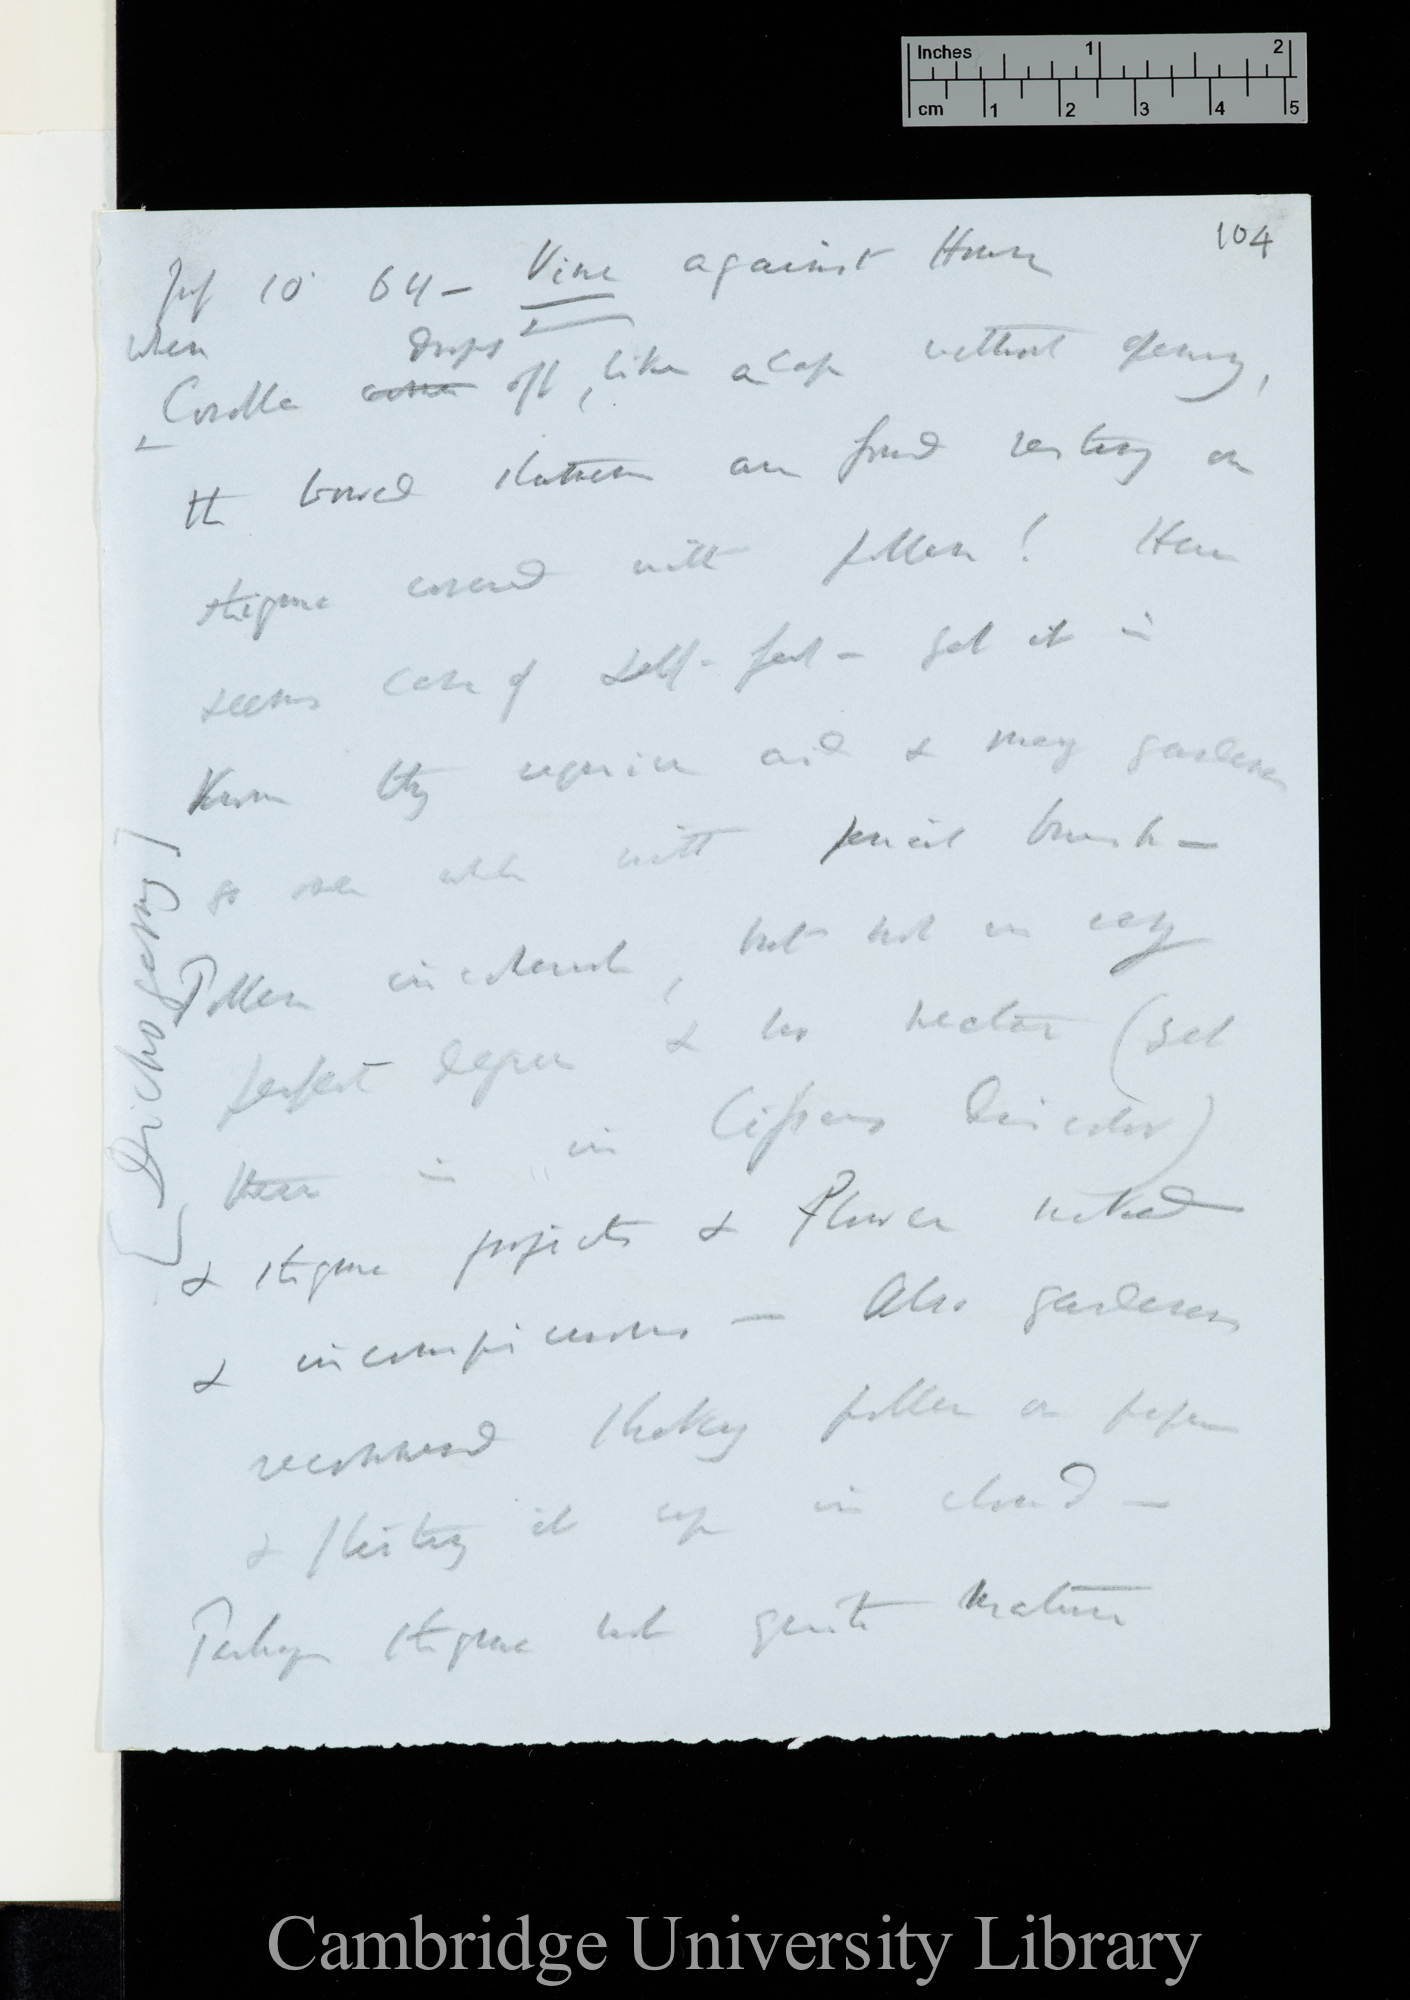 Inches 1 2
cm 1 2 3 4 5
104
July 10 64 — Vine against House
when drops
Corolla off, like a cap without opening,
the bowed stamens are found resting on
stigma covered with pollen! Here
seems case of self-fert — yet it is
known they require aid & many gardeners
go over whole with pencil brush —
Pollen incoherent, but not in very
perfect degree & no nectar (yet
there is in Cissus discolor)
& stigma projects & Flower naked
& inconspicuous — Also gardeners
recommend shaking pollen on paper
& it up in cloud —
Perhaps stigma not quite mature
[Dichogamy]
Cambridge University Library